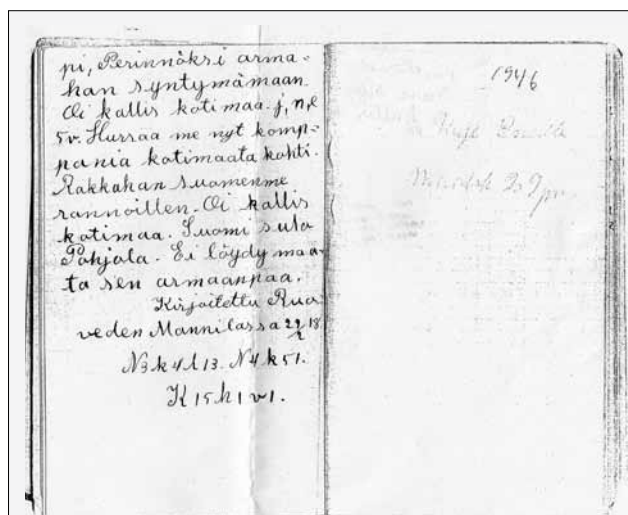 pi, Perinnöksi arma-
han syntymämaan.
Oi kallis kotimaa. j, n, e
5v. Hurraa me nyt komp-
pania kotimaata kohti.
Rakkahan Suomenme
rannoillen. Oi kallis
kotimaa. Suomi sula
Pohjola. Ei löydy maa-
ta sen armaanpaa.
Kirjoitettu Rua-
veden Mannilassa 22/2 18
N3 k4 l13. N4 k51.
K15 h1 v1.
1946